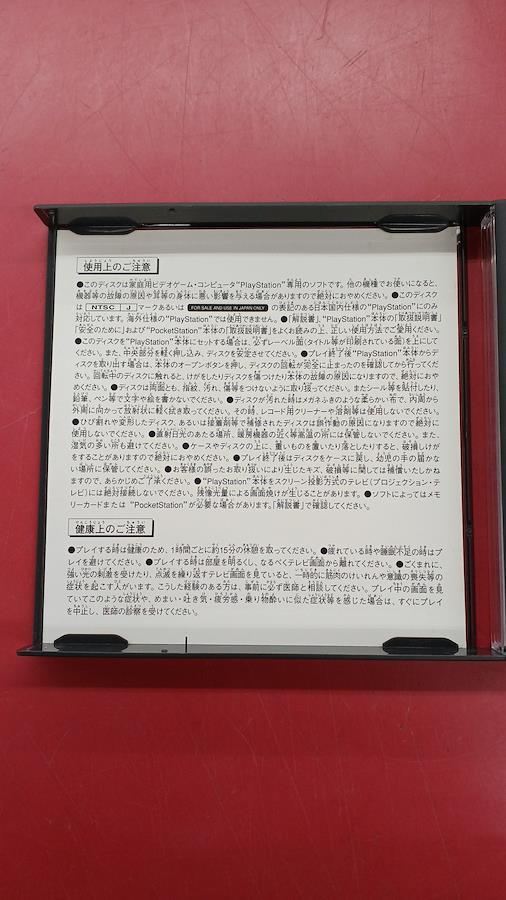 使用上のご注意
●このディスクは家庭用ビデオゲーム・コンピュータ"PlayStation"専用のソフトです。他の機種でお使いになると、
機器等の故障の原因や耳等の身体に悪い影響を与える場合がありますので絶対におやめください。●このディスク
は NTSC J マークあるいは FOR SALE AND USE IN JAPAN ONLY の表記のある日本国内仕様の"PlayStation"にのみ
対応しています。海外仕様の"PlayStation"では使用できません。●「解説書」、"PlayStation"本体の「取扱説明書」
「安全のために」および"PocketStation"本体の「取扱説明書」をよくお読みの上、正しい使用方法でご愛用ください。
●このディスクを"PlayStation"本体にセットする場合は、必ずレーベル面(タイトル等が印刷されている面)を上にして
ください。また、中央部分を軽く押し込み、ディスクを安定させてください。●プレイ終了後"PlayStation"本体からデ
ィスクを取り出す場合は、本体のオープンボタンを押し、ディスクの回転が完全に止まったのを確認してから行ってくだ
さい。回転中のディスクに触れると、けがをしたりディスクを傷つけたり本体の故障の原因になりますので、絶対におや
めください。●ディスクは両面とも、指紋、汚れ、傷等をつけないように取り扱ってください。またシール等を貼付したり、
鉛筆、ペン等で文字や絵を書かないでください。●ディスクが汚れた時はメガネふきのような柔らかい布で、内周から
外周に向かって放射状に軽く拭き取ってください。その時、レコード用クリーナーや溶剤等は使用しないでください。
●ひび割れや変形したディスク、あるいは接着剤等で補修されたディスクは誤作動の原因になりますので絶対に
使用しないでください。●直射日光のあたる場所、暖房機器の近く等高温の所には保管しないでください。また、
湿気の多い所も避けてください。●ケースやディスクの上に、重いものを置いたり落としたりすると、破損しけが
をすることがありますので絶対におやめください。●プレイ終了後はディスクをケースに戻し、幼児の手の届かな
い場所に保管してください。●お客様の誤ったお取り扱いにより生じたキズ、破損等に関しては補償いたしかね
ますので、あらかじめご了承ください。●"PlayStation"本体をスクリーン投影方式のテレビ(プロジェクション・テ
レビ)には絶対接続しないでください。残像光量による画面焼けが生じることがあります。●ソフトによってはメモ
リーカードまたは "PocketStation"が必要な場合があります。「解説書」で確認してください。
健康上のご注意
●プレイする時は健康のため、1時間ごとに約15分の休憩を取ってください。●疲れている時や睡眠不足の時はプ
レイを避けてください。●プレイする時は部屋を明るくし、なるべくテレビ画面から離れてください。●ごくまれに、
強い光の刺激を受けたり、点滅を繰り返すテレビ画面を見ていると、一時的に筋肉のけいれんや意識の喪失等の
症状を起こす人がいます。こうした経験のある方は、事前に必ず医師と相談してください。プレイ中の画面を見
ていてこのような症状や、めまい・吐き気・疲労感・乗り物酔いに似た症状等を感じた場合は、すぐにプレイ
を中止し、医師の診察を受けてください。